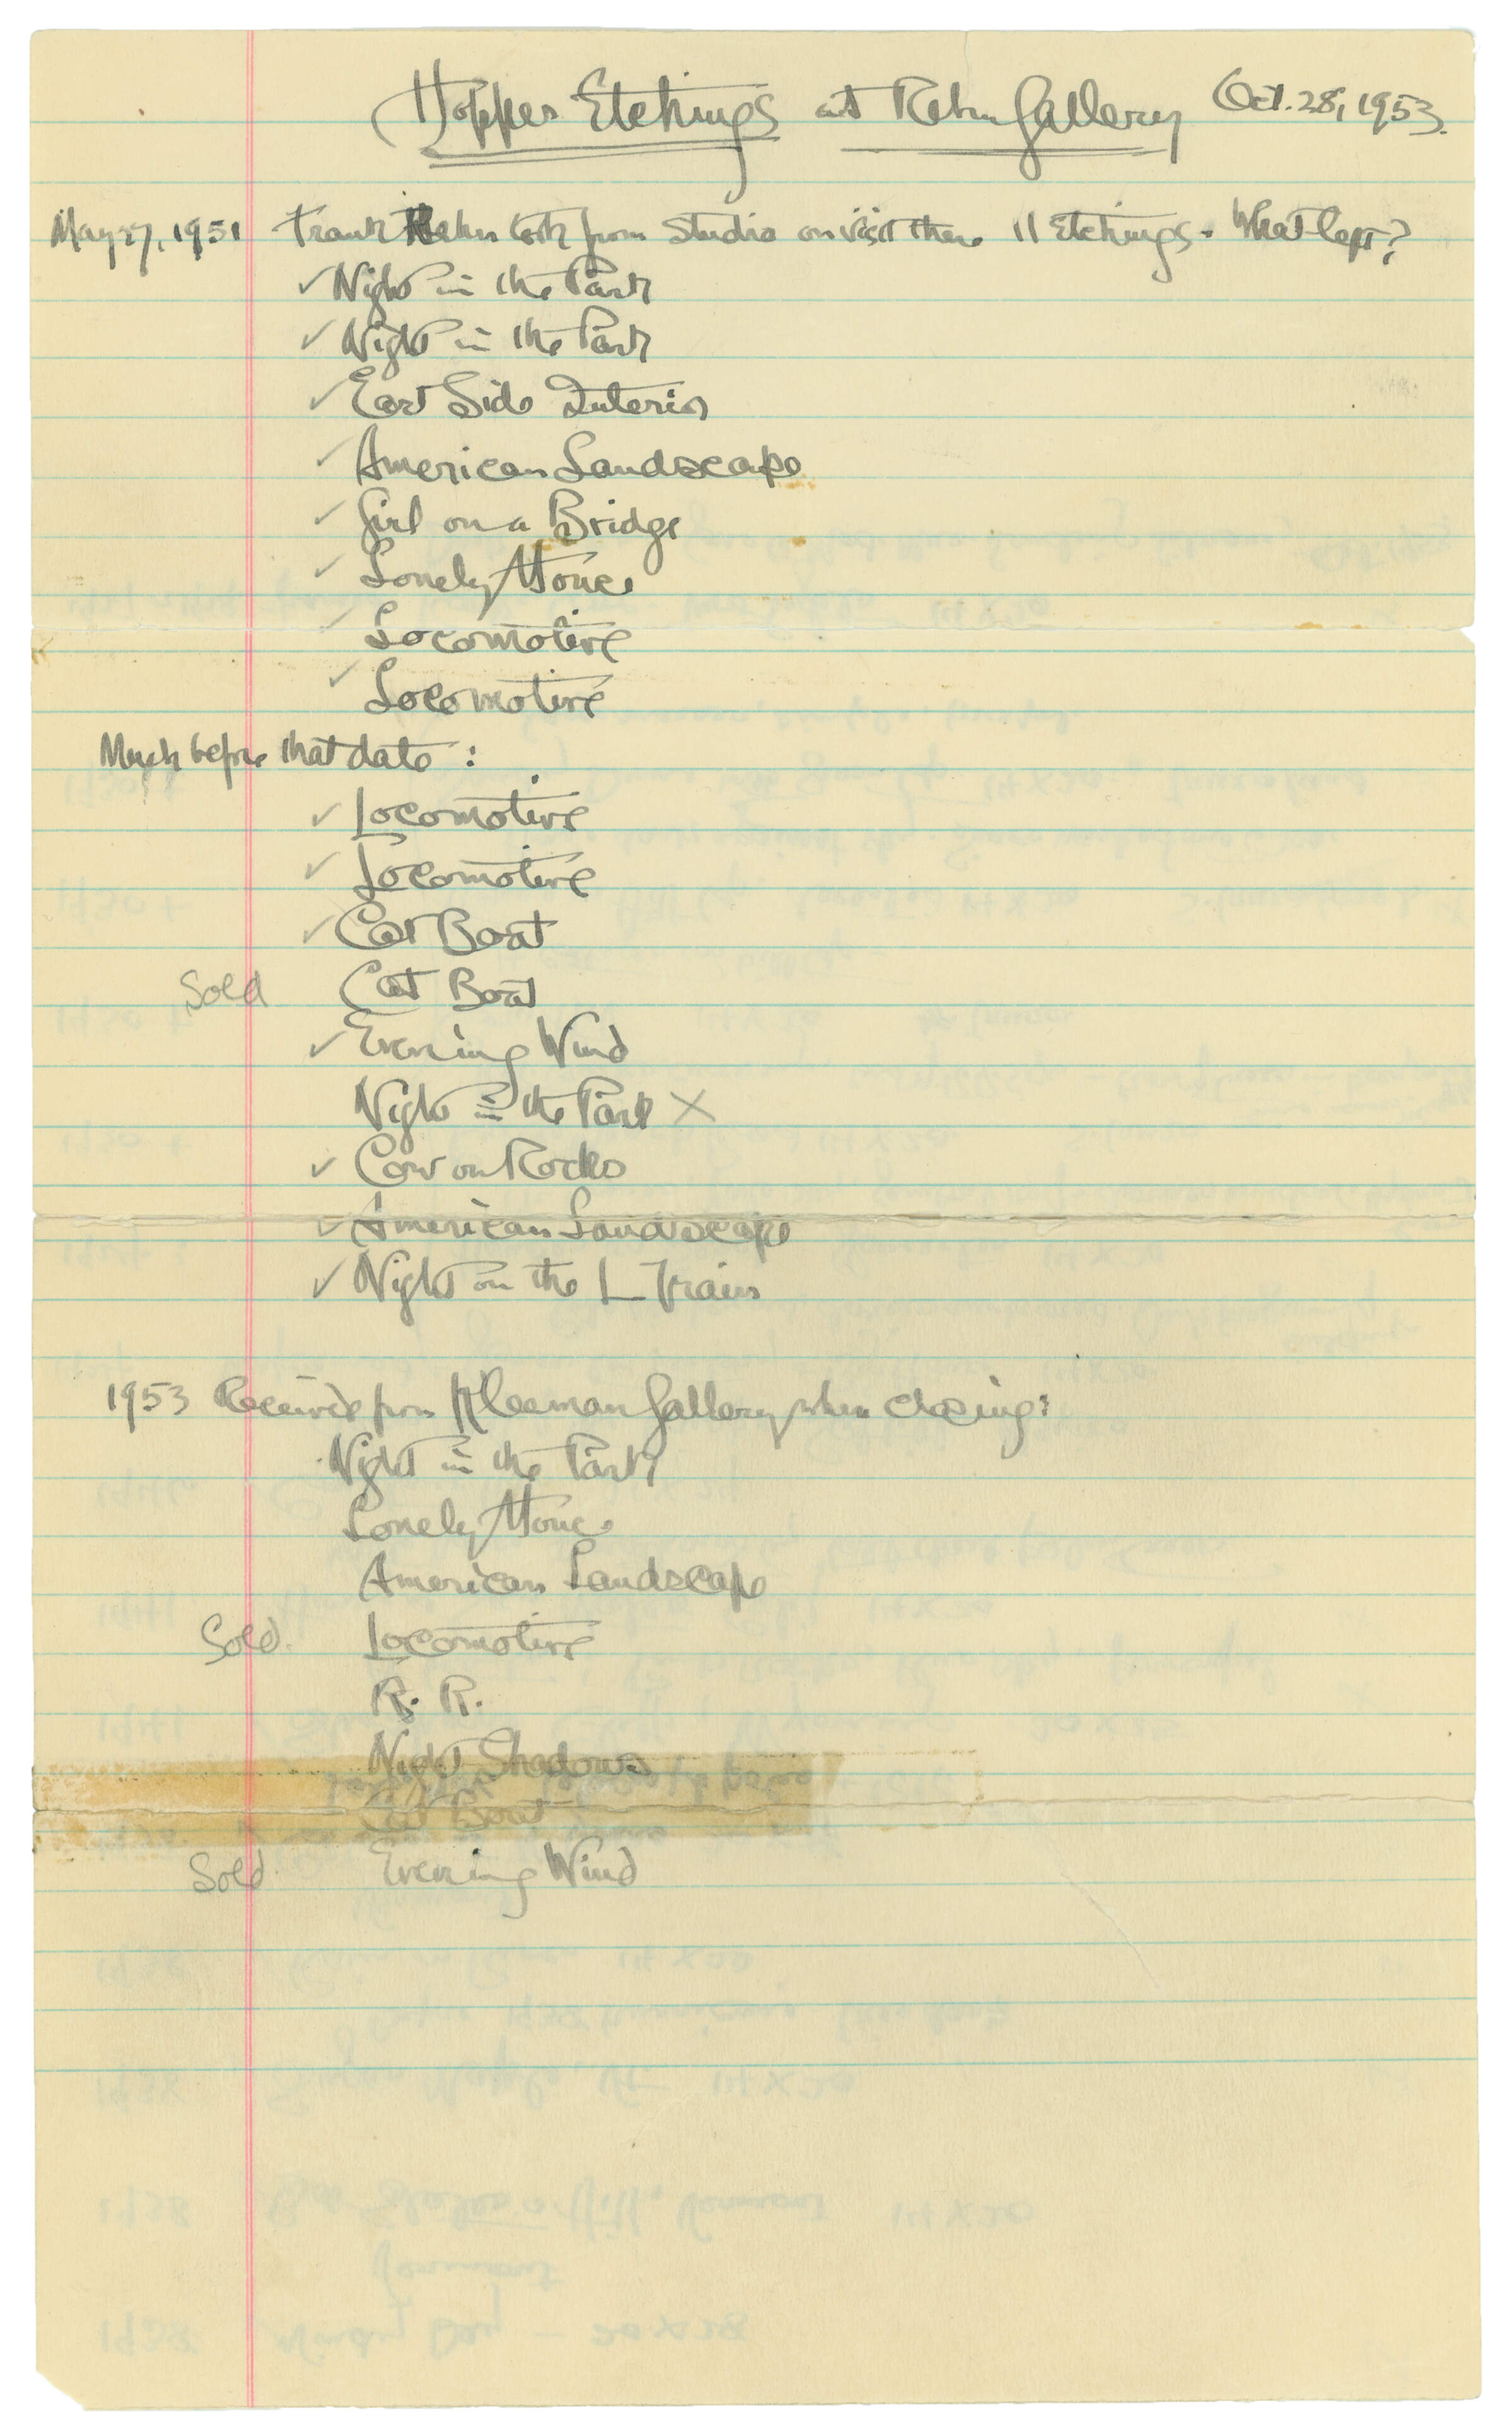 Hopper Etchings at Rehn Gallery Oct. 28, 1953.
May 27, 1951 Frank Rehn took from studio on visit there 11 Etchings. What left?
✓ Night in the Park
✓ Night in the Park
✓ East Side Interior
✓ American Landscape
✓ Girl on a Bridge
✓ Lonely House
✓ Locomotive
✓ Locomotive
Much before that date :
✓ Locomotive
✓ Locomotive
✓ Cat Boat
Sold Cat Boat
✓ Evening Wind
Night in the Park X
✓ Cow on Rocks
✓ American Landscape
✓ Night on the L Train
1953 Received from Kleeman Gallery when closing:
Night in the Park
Lonely House
American Landscape
Sold. Locomotive
R. R.
Night Shadows
Cat Boat
Sold Evening Wind